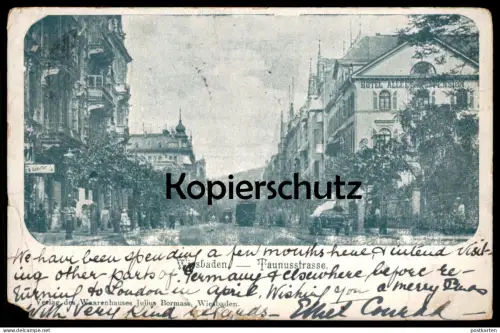 HOTEL ALLEESAAL PENSION
Kopierschutz
Wiesbaden. — Taunusstrasse.
We have been spending a few months here & intend visit-
ing other parts of Germany & elsewhere before re-
turning to London in April. Wishing you a merry Xmas
Verlag des Waarenhauses Julius Bormass, Wiesbaden.
With very kind regards — Ethel Conrad